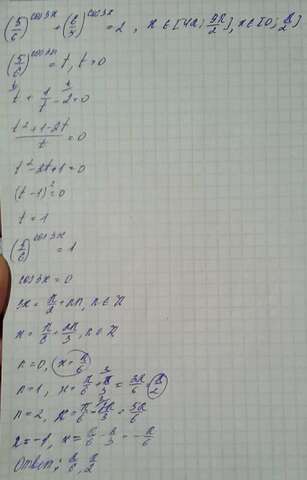 (5/6)^cos3x + (6/5)^cos3x = 2, x ∈ [4π; 9π/2], x ∈ [0; π/2]
(5/6)^cos3x = t, t > 0
t + 1/t - 2 = 0
t² + 1 - 2t / t = 0
t² - 2t + 1 = 0
(t - 1)² = 0
t = 1
(5/6)^cos3x = 1
cos 3x = 0
3x = π/2 + πn, n ∈ Z
x = π/6 + πn/3, n ∈ Z
n = 0, x = π/6
n = 1, x = π/6 + π/3 = 3π/6 π/2
n = 2, x = π/6 + 2π/3 = 5π/6
n = -1, x = π/6 - π/3 = -π/6
Ответ: π/6, π/2